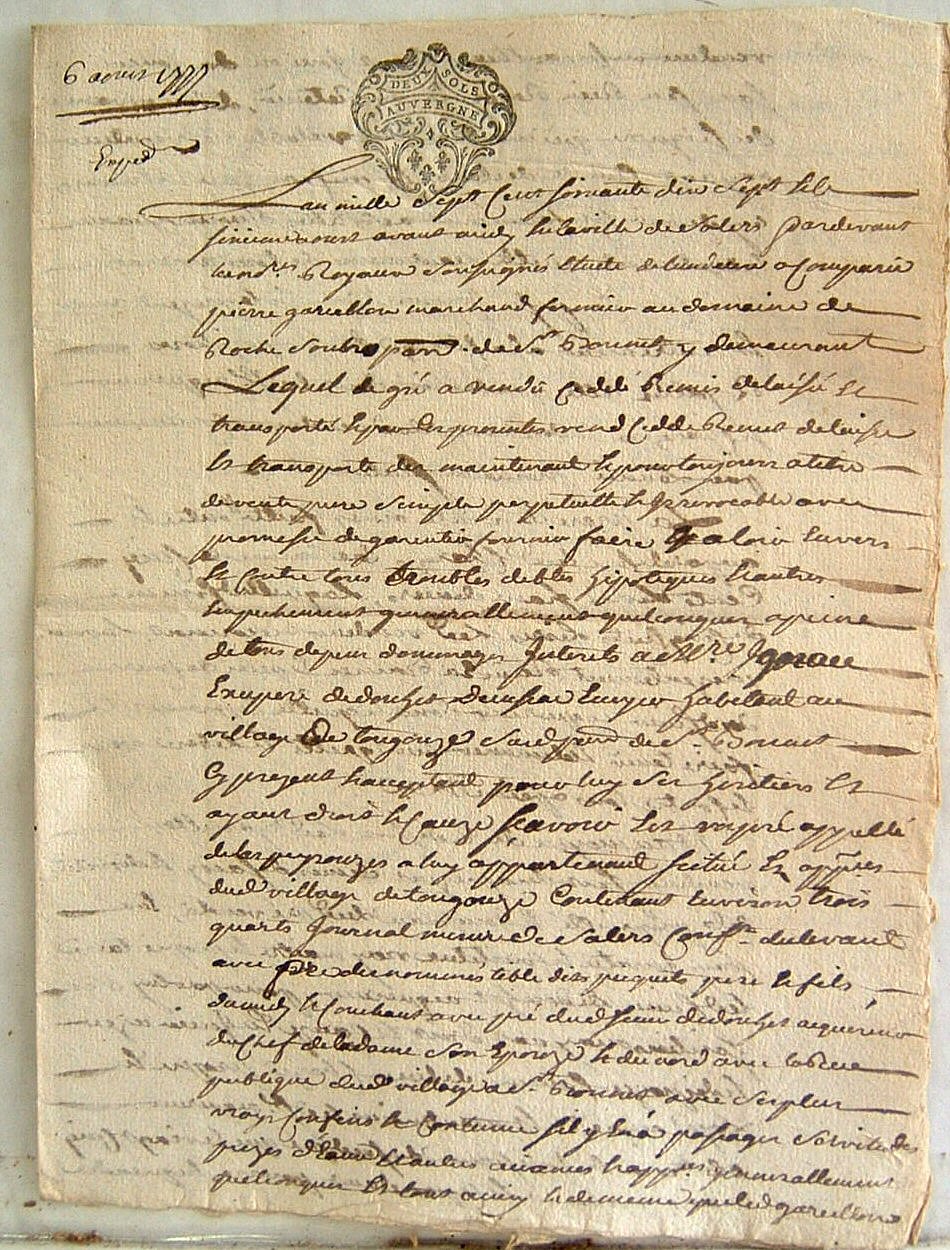 6 aout 1777
DEUX SOLS
AUVERGNE
Exped
Lan mille sept Cent soixante dix sept et le
sixieme aout avant midy en la ville de Salers Pardevant
les no.res Royaux soussignés a Comparu
pierre garcellon marchand fermier au domaine de
Roche soubro parr. de S.t Bonnet y demeurant
Lequel de gré a vendu Cedé Remis delaissé Et
transporté Et par Ces presentes vend Cedde Remet delaisse
Et transporte des maintenant Et pour toujours a titre
de vente pure simple perpetuelle Et Irrevocable avec
promesse de garentir fournir faire Valoir Envers
Et Contre tous troubles debtes hipoteques Et autres
Empechements generallement quelconques a peine
de tous depens dommages Interets a M.re Ignace
Exupere habitant au
village de tougouze parr de S.t Bonnet
Cy present Et acceptant pour luy ses heritiers Et
ayant droit Et Cauze scavoir Est un pré appellé
de las peyrouzes a luy appartenant scitué Es app.ces
dud village de tougouze Contenant Environ trois
quarts Journal mezure de Salers Conf.te du levant
avec pré dits pere Et fils
du midy Et Couchant avec pré dud sieur acquereur
du Chef de la dame son Epouze Et du nord avec la Rue
publique dud village a S.t Bonnet avec ses plus
vrays Confins Et Contenue sil y En a passages servitudes
prizes deau Et autres aizances Et app.ces generallement
quelconques Et tout ainsy Et de meme que led garcellon